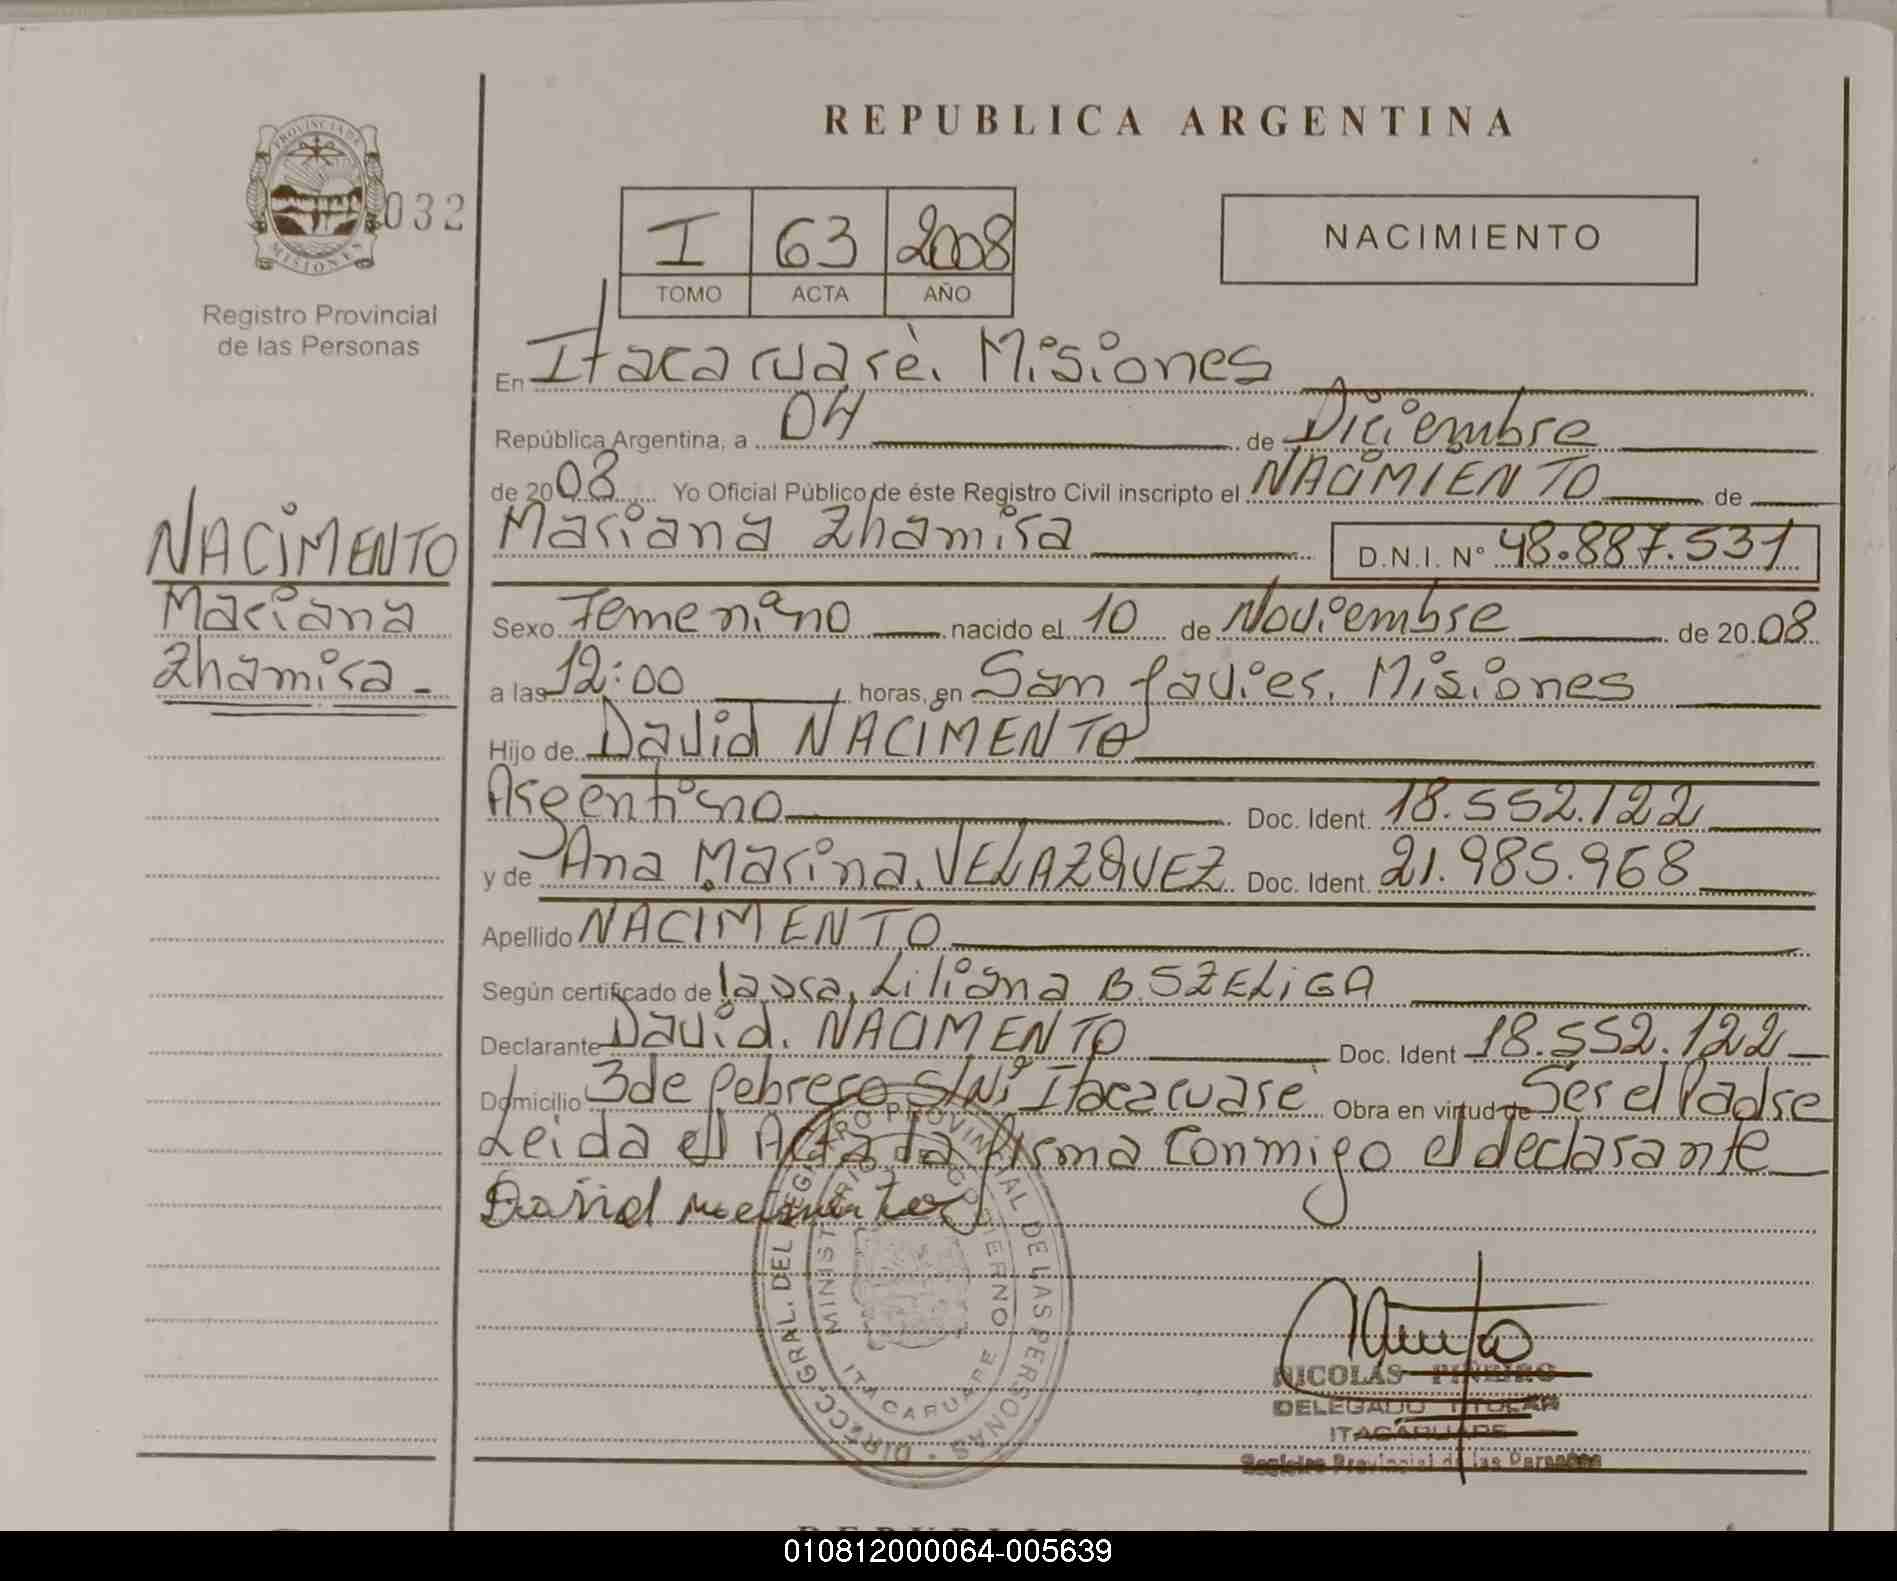 REPUBLICA ARGENTINA
PROVINCIA DE
MISIONES
032
Registro Provincial
de las Personas
I 63 2008
TOMO ACTA AÑO
NACIMIENTO
NACIMENTO
Mariana
Zhamira -
En Itacaruarè. Misiones
República Argentina, a 04 de Diciembre
de 2008 Yo Oficial Público de éste Registro Civil inscripto el NACIMIENTO de
Mariana Zhamira D.N.I. Nº 48.887.531
Sexo Femenino nacido el 10 de Noviembre de 20 08
a las 12:00 horas, en San Javier. Misiones
Hijo de David NACIMENTO
Argentino Doc. Ident. 18.552.122
y de Ana Marina VELAZQUEZ Doc. Ident. 21.985.968
Apellido NACIMENTO
Según certificado de Liliana B. SZELIGA
Declarante David. NACIMENTO Doc. Ident 18.552.122
Domicilio 3 de Febrero S/Nº Itacaruare Obra en virtud de Ser el Padre
Leida el Acta la firma conmigo el declarante
David
DIRECC. GRAL. DEL REGISTRO PROVINCIAL DE LAS PERSONAS
MINISTERIO DE GOBIERNO
ITACARUARE
NICOLAS PIÑEIRO
DELEGADO TITULAR
ITACARUARE
Registro Provincial de las Personas
010812000064-005639